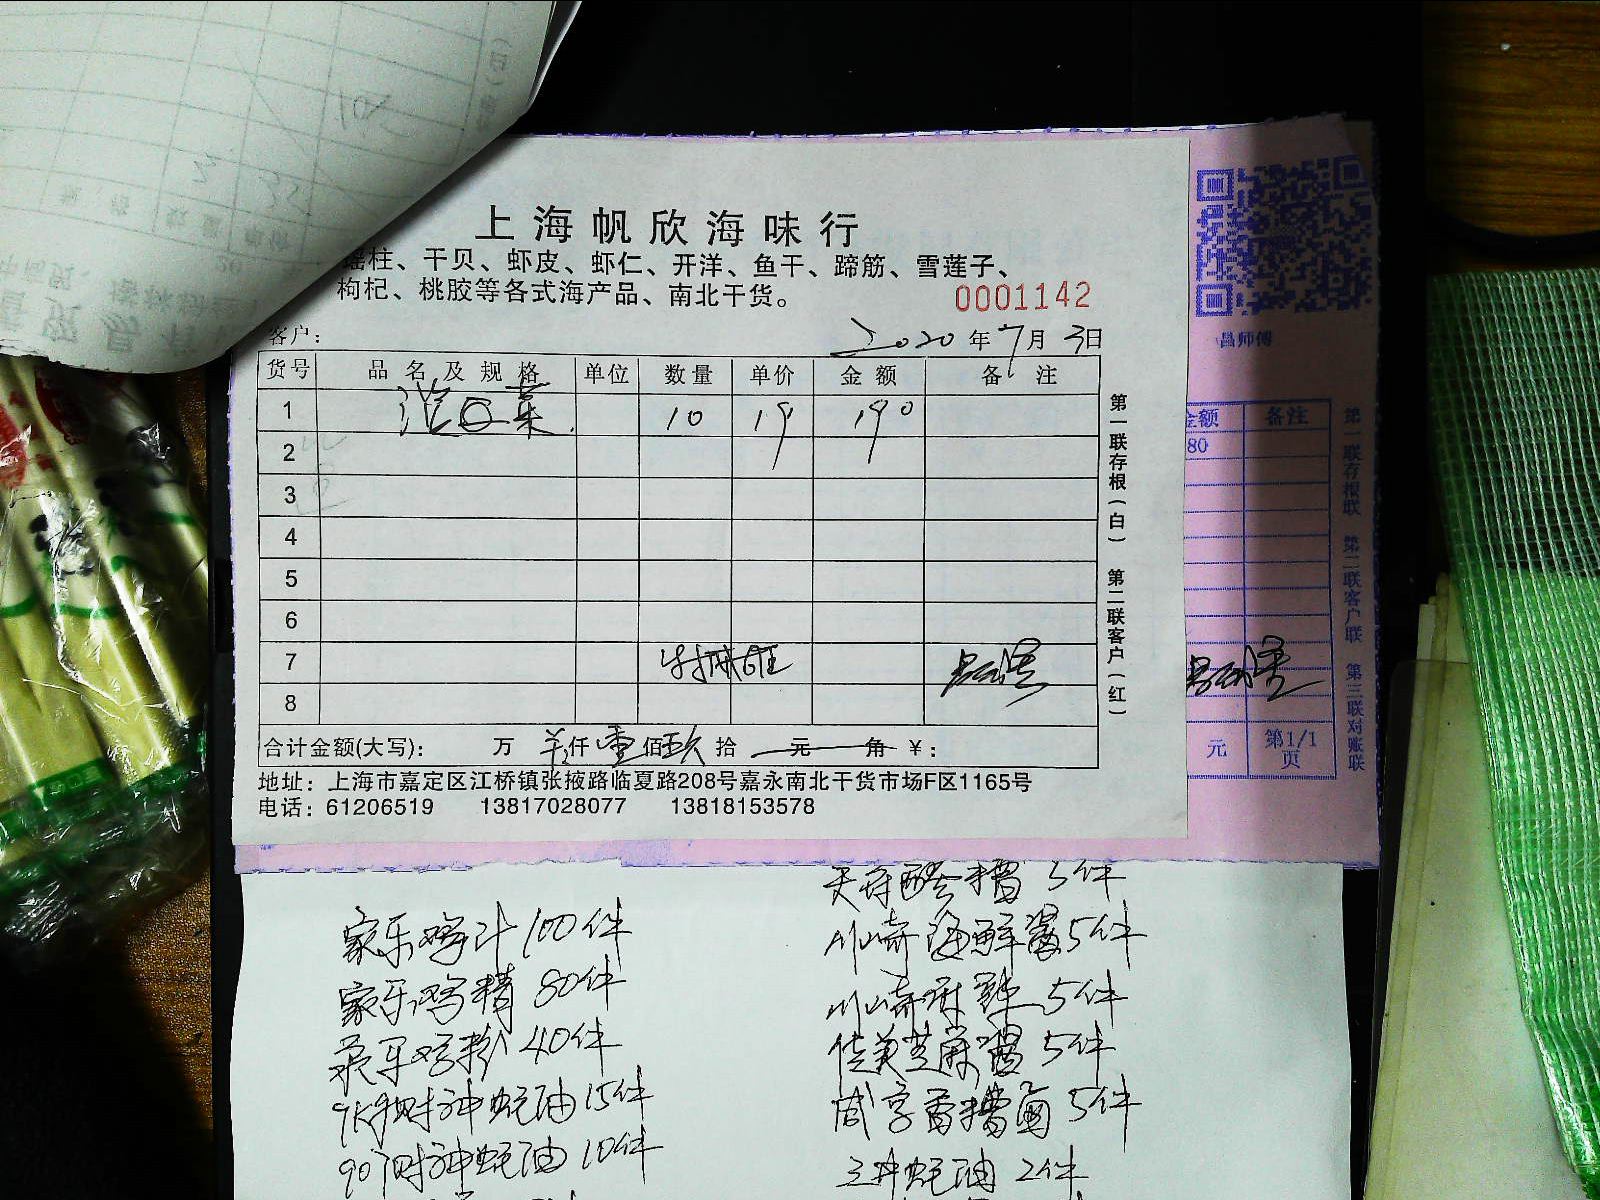 上海帆欣海味行
瑶柱、干贝、虾皮、虾仁、开洋、鱼干、蹄筋、雪莲子、
枸杞、桃胶等各式海产品、南北干货。
0001142
客户：
2020年7月3日
货号 品名及规格 单位 数量 单价 金额 备注
1 10 19 190
2
3
4
5
6
7
8
合计金额(大写)： 万 仟壹佰玖拾元角￥：
地址：上海市嘉定区江桥镇张掖路临夏路208号嘉永南北干货市场F区1165号
电话：61206519 13817028077 13818153578
第一联存根(白) 第二联客户(红)
昌师傅
金额 备注
80
元 第1/1页
第一联存根联 第二联客户联 第三联对账联
家乐鸡汁100件
家乐鸡精80件
家乐鸡粉40件
财神蚝油15件
财神蚝油10件
糟5件
川崎海鲜酱5件
川崎麻辣5件
佳美芝麻酱5件
咸亨香糟卤5件
三井蚝油2件